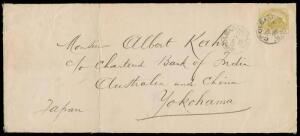 Monsieur Albert Koehn
c/o Chartered Bank of India
Australia and China
Yokohama
Japan